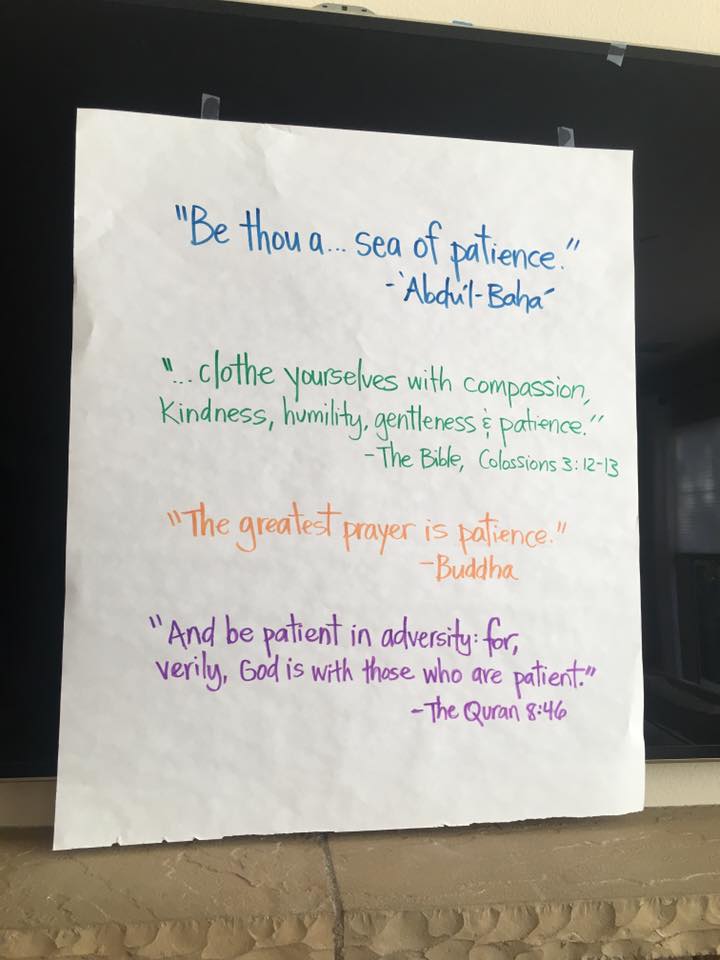 "Be thou a... sea of patience."
-'Abdu'l-Baha´
"...clothe yourselves with compassion,
Kindness, humility, gentleness & patience."
-The Bible, Colossions 3:12-13
"The greatest prayer is patience."
-Buddha
"And be patient in adversity: for,
verily, God is with those who are patient."
-The Quran 8:46